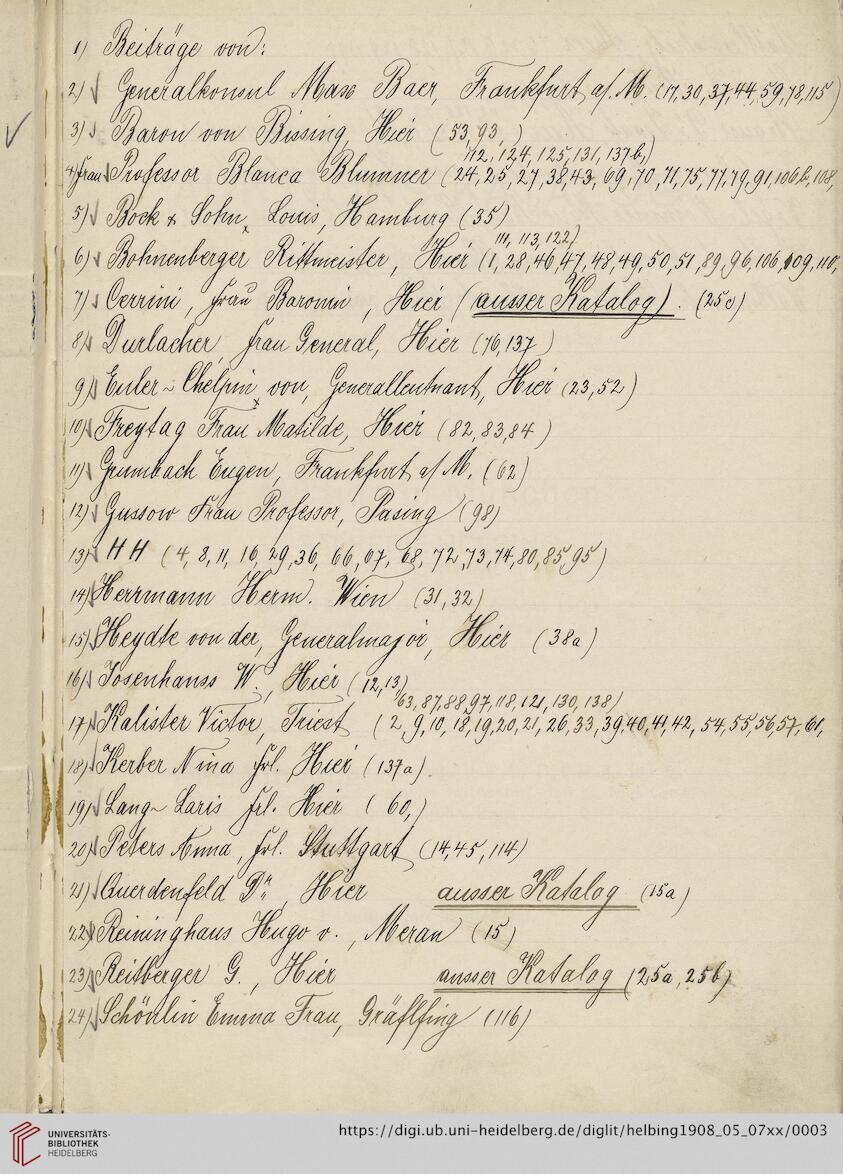 1) Beiträge von:
2) Generalkonsul Max Baer, Frankfurt a/M. (17, 30, 37, 44, 59, 78, 115)
3) Baron von Bissing, Hier (53, 93,)
112, 124, 125, 131, 137b,)
4) Frau Professor Blanca Blumner (24, 25, 27, 38, 43, 69, 70, 71, 75, 77, 79, 91, 106b, 108,
5) Bock & Sohn, Louis, Hamburg (35)
111, 113, 122)
6) Bohnenberger Rittmeister, Hier (1, 28, 46, 47, 48, 49, 50, 51, 89, 96, 106, 109, 110,
7) Cerrini, Frau Baronin, Hier (ausser Katalog). (25c)
8) Durlacher, Frau General, Hier (76, 137)
9) Euler-Chelpin von, Generalleutnant, Hier (23, 52)
10) Freytag Frau Matilde, Hier (82, 83, 84)
11) Grumbach Eugen, Frankfurt a/M. (62)
12) Gussow Frau Professor, Pasing (98)
13) H H (4, 8, 11, 16, 29, 36, 66, 67, 68, 72, 73, 74, 80, 85, 95)
14) Herrmann Herm. Wien (31, 32)
15) Heydte von der, Generalmajor, Hier (38a)
16) Josenhanss W., Hier (12, 13)
63, 87, 88, 97, 118, 121, 130, 138)
17) Kalister Victor, Triest (2, 9, 10, 18, 19, 20, 21, 26, 33, 39, 40, 41, 42, 54, 55, 56, 57, 61,
18) Kerber Nina Frl. Hier (137a)
19) Lang-Laris Frl. Hier (60,)
20) Peters Anna, Frl. Stuttgart (14, 45, 114)
21) Querdenfeld Dr., Hier ausser Katalog (15a)
22) Reininghaus Hugo v., Meran (15)
23) Reitberger G., Hier ausser Katalog (25a, 25b)
24) Schönlin Emma Frau, Gräflfing (116)
UNIVERSITÄTS-
BIBLIOTHEK
HEIDELBERG
https://digi.ub.uni-heidelberg.de/diglit/helbing1908_05_07xx/0003